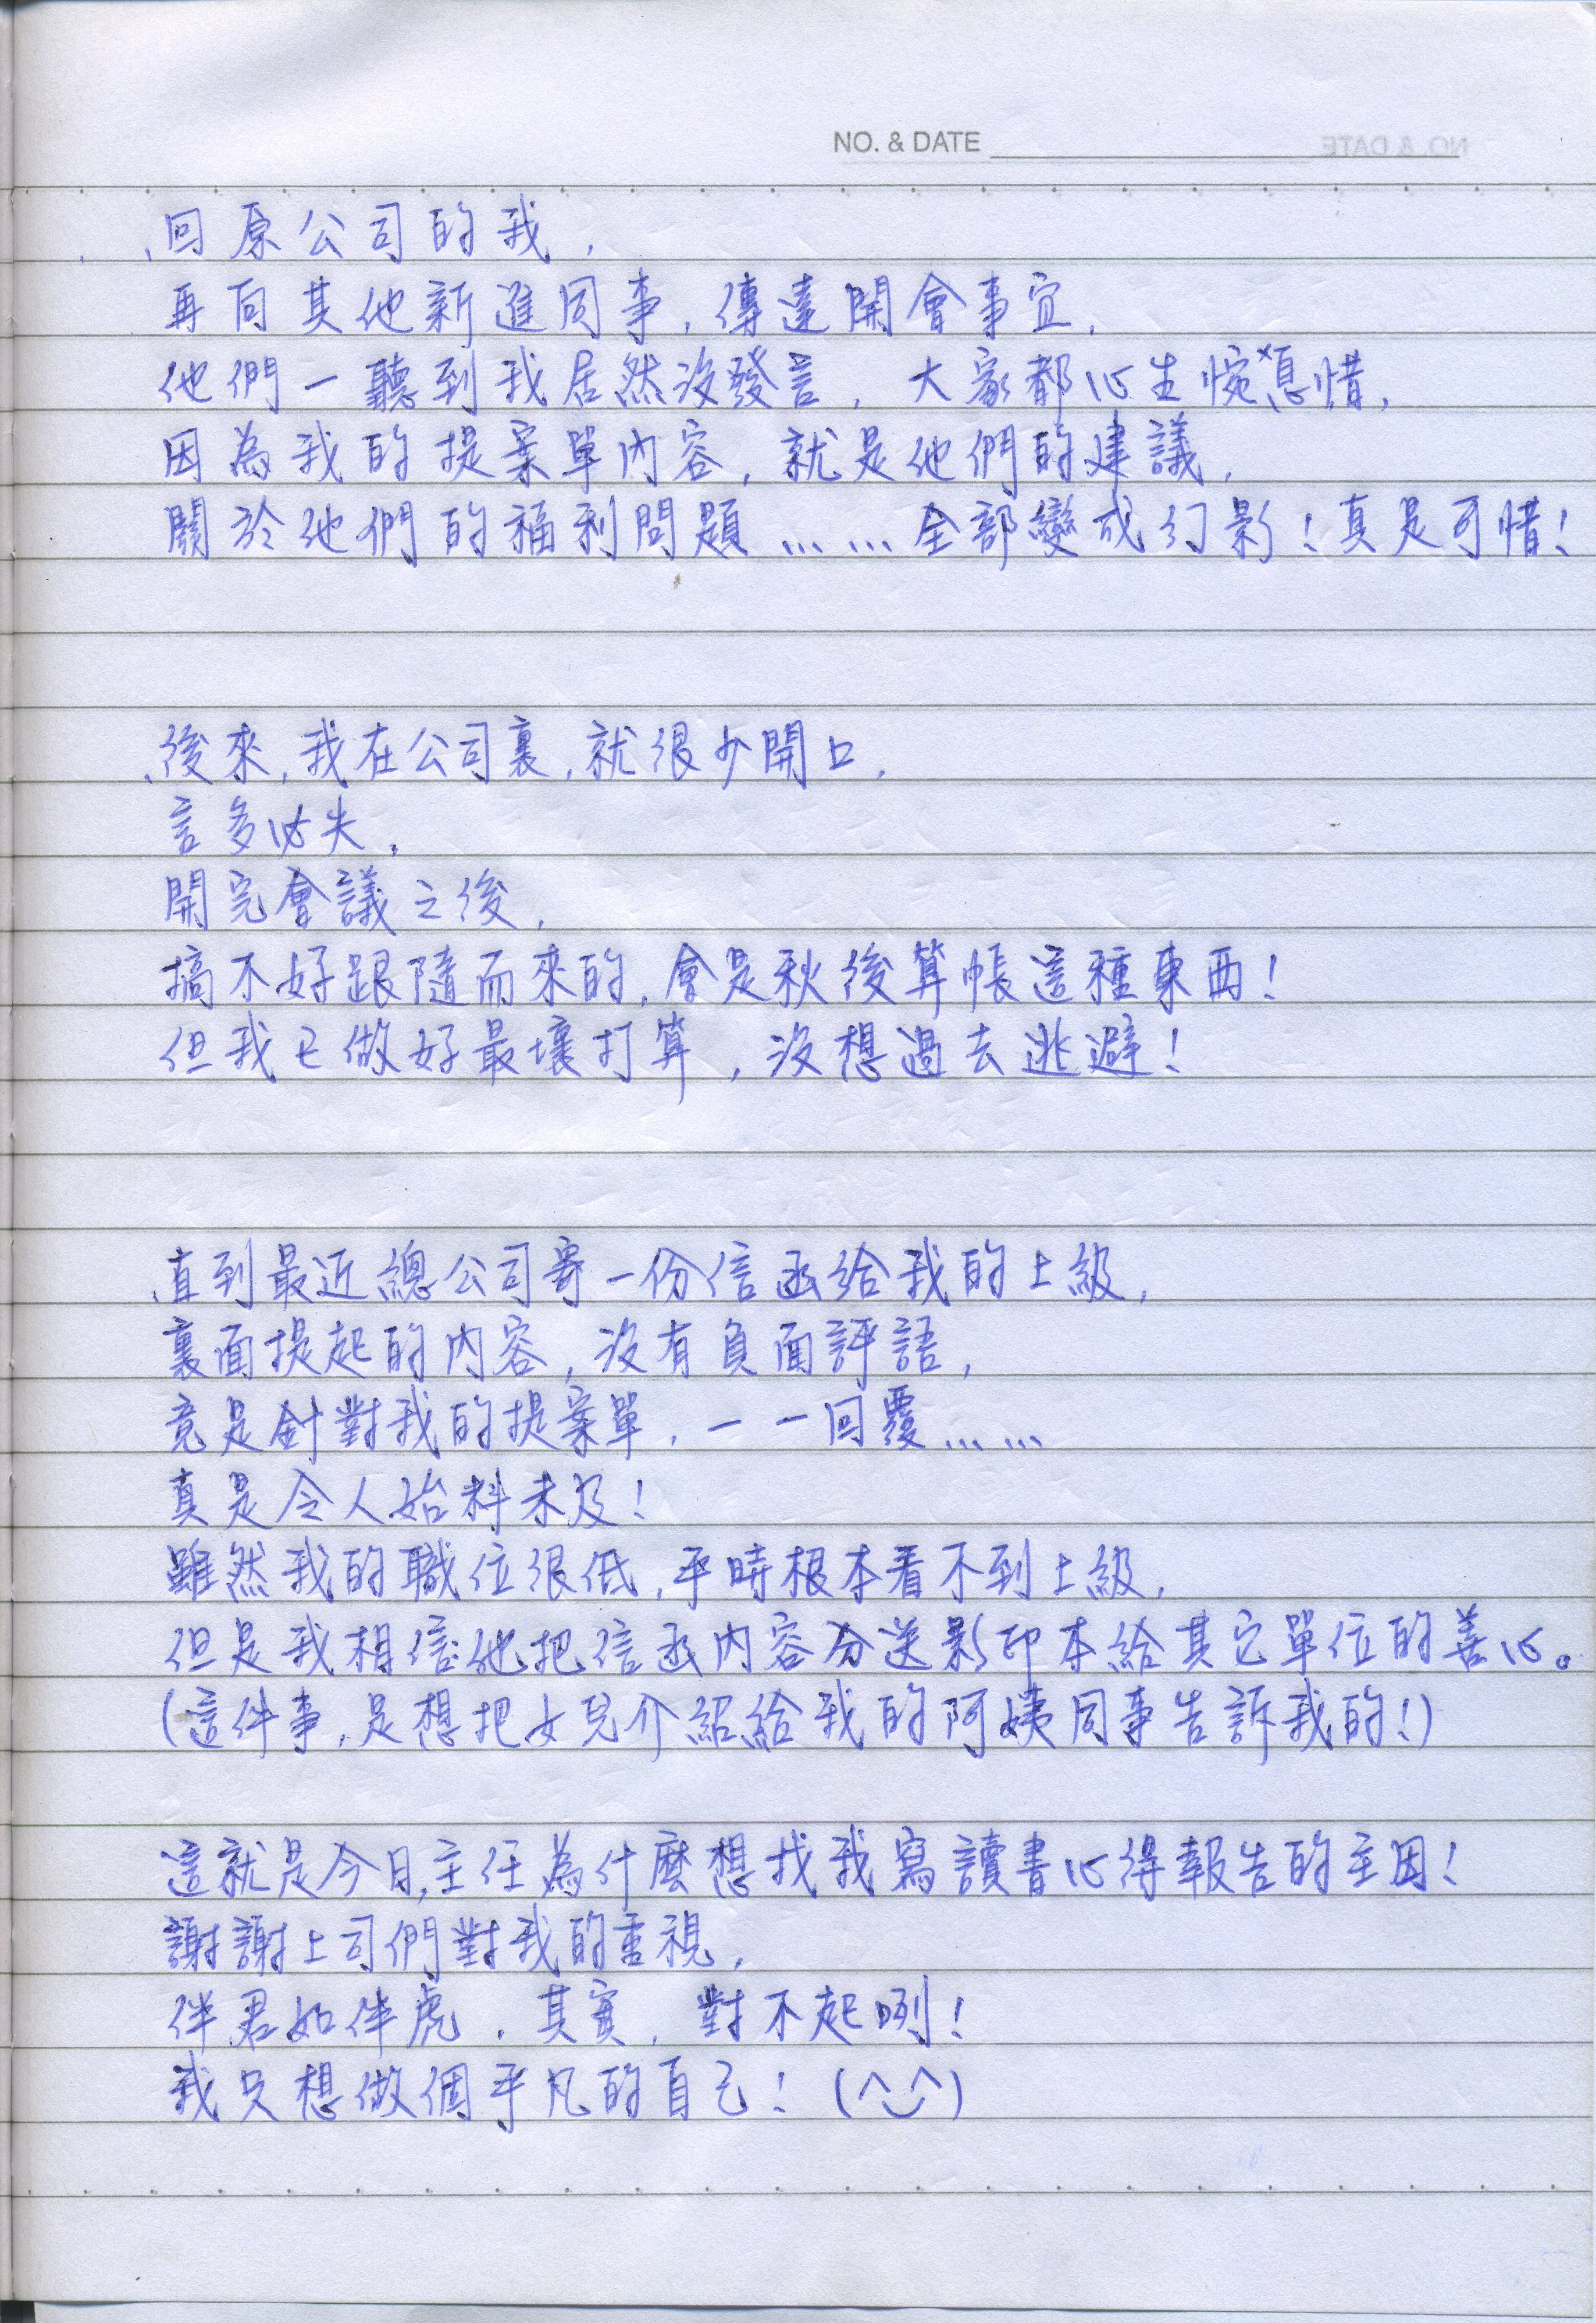 NO. & DATE
回原公司的我,
再向其他新進同事,傳達開會事宜,
他們一聽到我居然沒發言,大家都心生惋惜,
因為我的提案單內容,就是他們的建議,
關於他們的福利問題……全部變成幻影!真是可惜!
後來,我在公司裏,就很少開口,
言多必失,
開完會議之後,
搞不好跟隨而來的,會是秋後算帳這種東西!
但我已做好最壞打算,沒想過去逃避!
直到最近總公司寄一份信函給我的上級,
裏面提起的內容,沒有負面評語,
竟是針對我的提案單,一一回覆……
真是令人始料未及!
雖然我的職位很低,平時根本看不到上級,
但是我相信他把信函內容分送影印本給其它單位的善心。
(這件事,是想把女兒介紹給我的阿姨同事告訴我的!)
這就是今日,主任為什麼想找我寫讀書心得報告的主因!
謝謝上司們對我的重視,
伴君如伴虎,其實,對不起咧!
我只想做個平凡的自己!(^◡^)